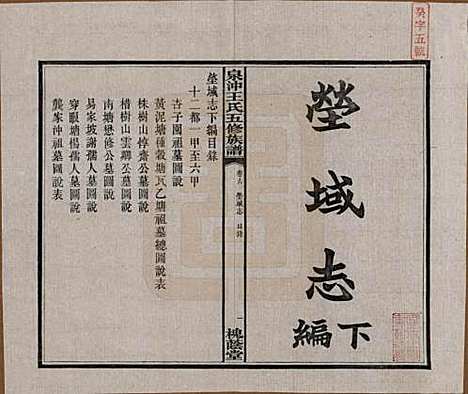 癸字五號
塋域志
下編
泉沖王氏五修族譜
塋域志 目錄
一
槐蔭堂
塋域志下編目錄
十二都一甲至六甲
杏子園祖墓圖說
黃泥塘種穀塘瓦乙塘祖墓總圖說表
株樹山惇齋公墓圖說
楷樹山雲卿公墓圖說表
南塘懋修公墓圖說
易家坡謝孺人墓圖說
穿眼塘楊孺人墓圖說
龔家沖祖墓圖說表